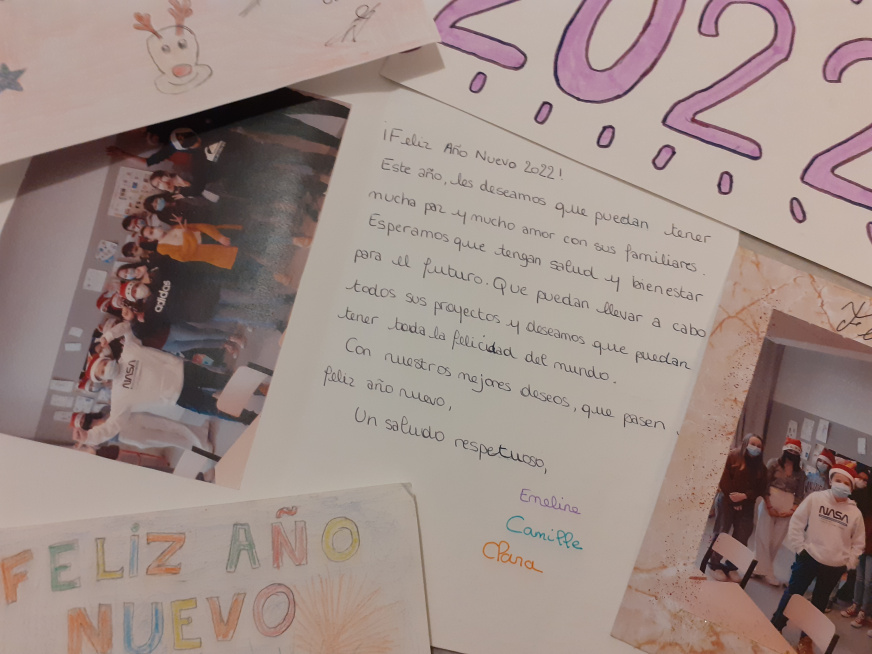 2022
¡Feliz Año Nuevo 2022!
Este año, les deseamos que puedan tener
mucha paz y mucho amor con sus familiares.
Esperamos que tengan salud y bienestar
para el futuro. Que puedan llevar a cabo
todos sus proyectos y deseamos que puedan
tener toda la felicidad del mundo.
Con nuestros mejores deseos, que pasen
feliz año nuevo,
Un saludo respetuoso,
Emeline
Camille
Clara
adidas
NASA
FELIZ AÑO
NUEVO
NASA